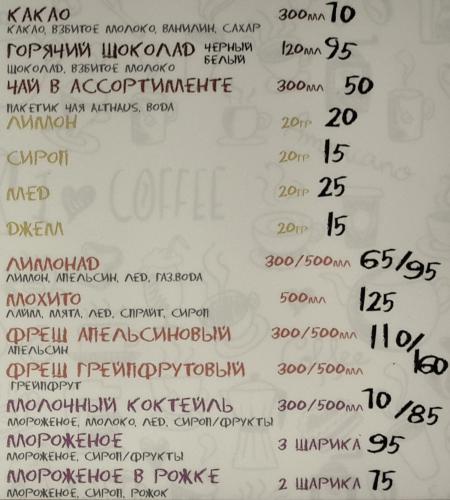 КАКАО 300МЛ 70
КАКАО, ВЗБИТОЕ МОЛОКО, ВАНИЛИН, САХАР
ГОРЯЧИЙ ШОКОЛАД ЧЕРНЫЙ 120МЛ 95
БЕЛЫЙ
ШОКОЛАД, ВЗБИТОЕ МОЛОКО
ЧАЙ В АССОРТИМЕНТЕ 300МЛ 50
ПАКЕТИК ЧАЯ ALTHAUS, ВОДА
ЛИМОН 20ГР 20
СИРОП 20ГР 15
МЕД 20ГР 25
ДЖЕМ 20ГР 15
COFFEE
ЛИМОНАД 300/500МЛ 65/95
ЛИМОН, АПЕЛЬСИН, ЛЕД, ГАЗ.ВОДА
МОХИТО 500МЛ 125
ЛАЙМ, МЯТА, ЛЕД, СПРАЙТ, СИРОП
ФРЕШ АПЕЛЬСИНОВЫЙ 300/500МЛ 110/160
АПЕЛЬСИН
ФРЕШ ГРЕЙПФРУТОВЫЙ 300/500МЛ
ГРЕЙПФРУТ
МОЛОЧНЫЙ КОКТЕЙЛЬ 300/500МЛ 70/85
МОРОЖЕНОЕ, МОЛОКО, ЛЕД, СИРОП/ФРУКТЫ
МОРОЖЕНОЕ 3 ШАРИКА 95
МОРОЖЕНОЕ, СИРОП/ФРУКТЫ
МОРОЖЕНОЕ В РОЖКЕ 2 ШАРИКА 75
МОРОЖЕНОЕ, СИРОП, РОЖОК